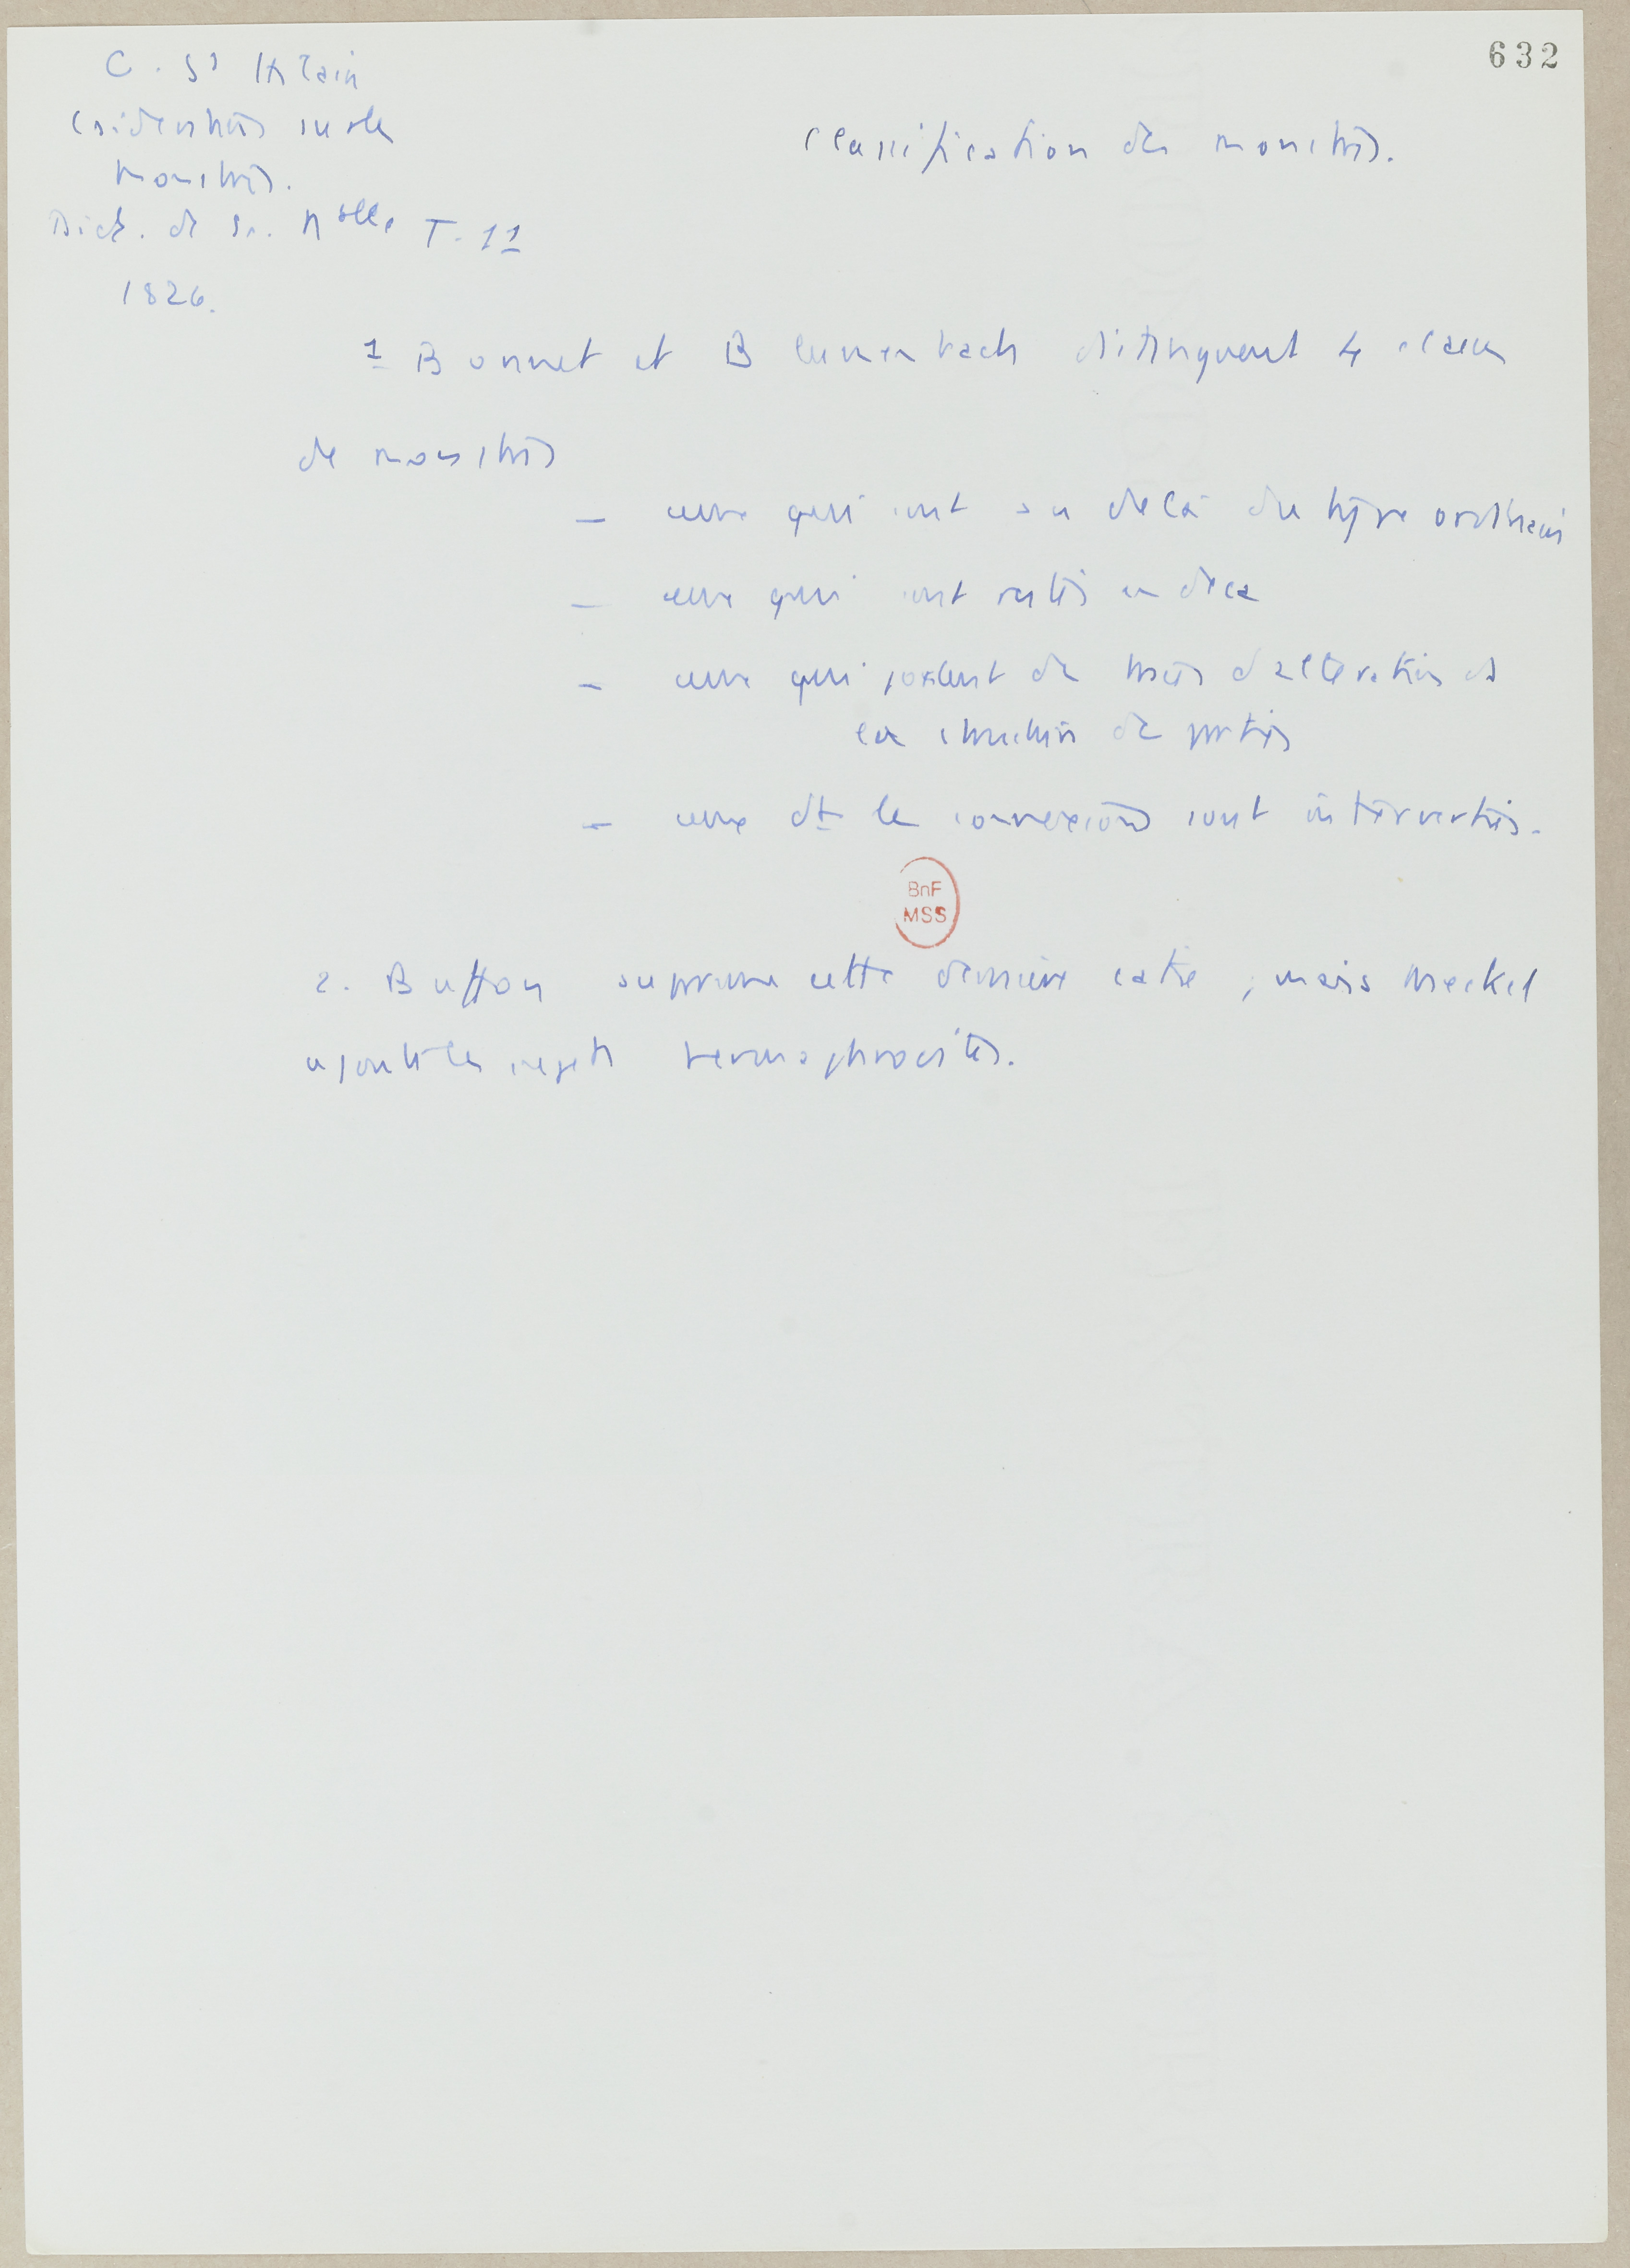 632
G. St Hilaire
Csidérations sur les
monstres.
Dict. de Sc. Nelles T. 11
1826.
Classification des monstres.
1 Bonnet et Blumenbach distinguent 4 classes
de monstres
— ceux qui sont au delà du type ordinaire
— ceux qui sont restés en deca
— ceux qui portent des d'altération ds
la structure des parties
— ceux dt les connexions sont interverties.
BnF
MSS
2. Buffon supprime cette dernière catie ; mais Meckel
ajoute les sujets hermaphrodites.